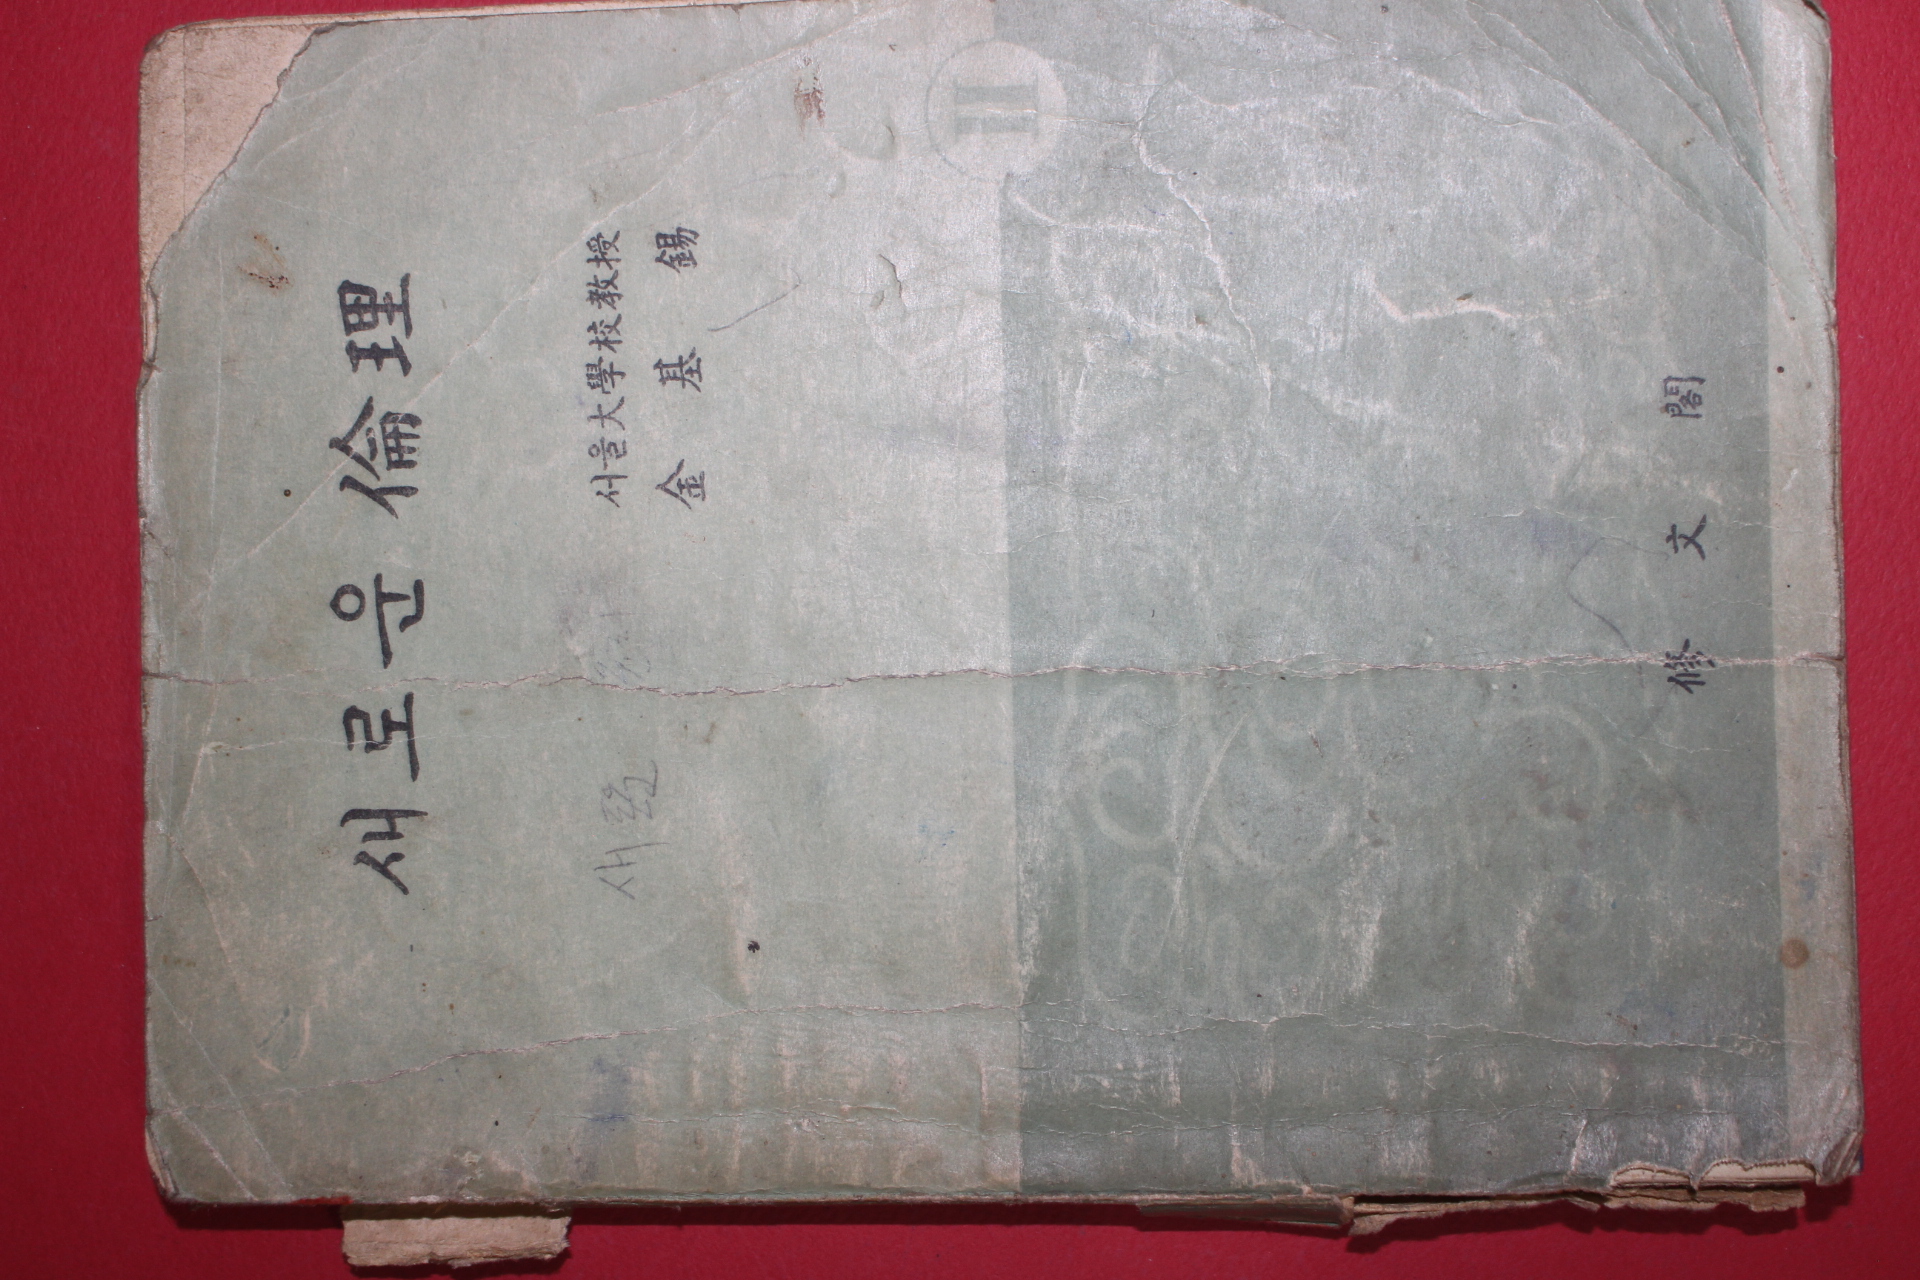 새로운 倫理
III
서울大學校教授
金基錫
修文閣